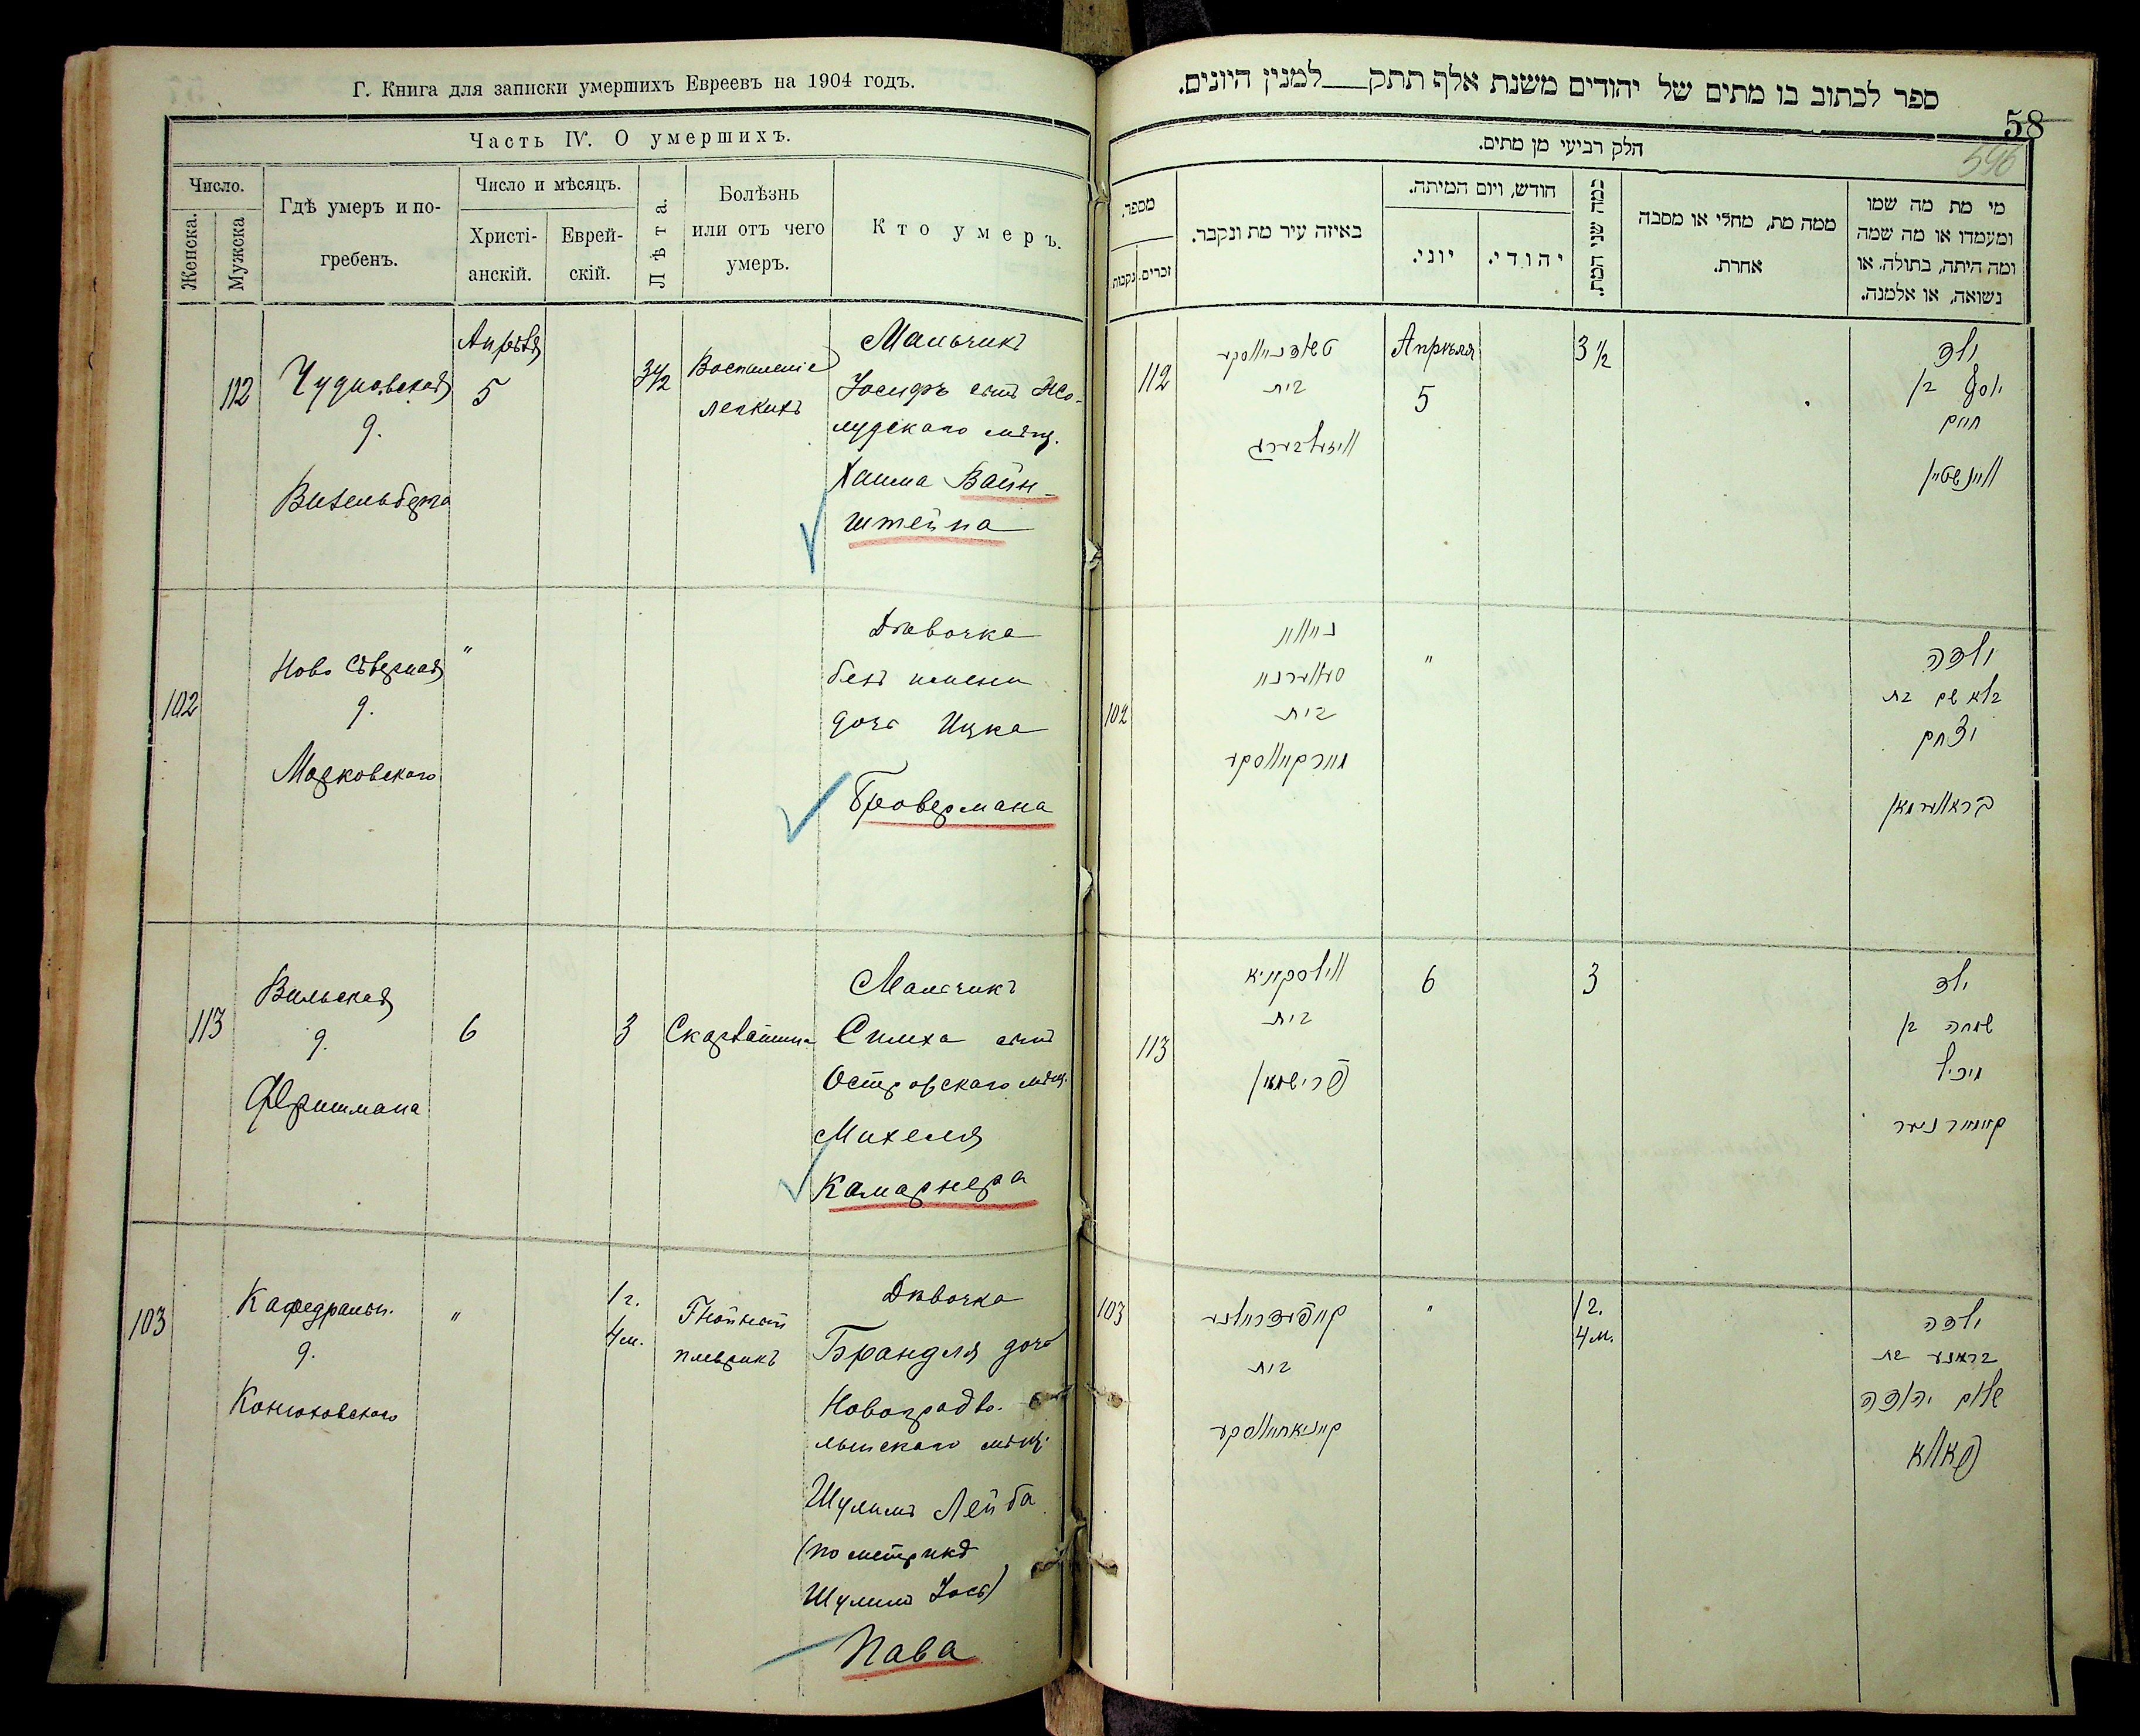 Г. Книга для записки умершихъ Евреевъ на 1904 годъ.
Часть IV. О умершихъ.
Число.
Женска.
Мужска
Гдѣ умеръ и по-
гребенъ.
Число и мѣсяцъ.
Христі-
анскій.
Еврей-
скій.
Лѣта.
Болѣзнь
или отъ чего
умеръ.
Кто умеръ.
112
Чудновская
д.
Визельберга
Апрѣля
5
3 1/2
Воспаленіе
легкихъ
Мальчикъ
Іосифъ сынъ Жо-
лудскаго мѣщ.
Хаима Вайн-
штейна
102
Ново Сѣверная
д.
Марковскаго
"
Дѣвочка
безъ имени
дочь Ицка
Бровермана
113
Вильская
д.
Фришмана
6
3
Скарлатина
Мальчикъ
Симха сынъ
Островскаго мѣщ.
Михеля
Камарнера
103
Кафедральн.
д.
Конюховскаго
"
1 г.
4 м.
Гнойный
плевритъ
Дѣвочка
Брандля дочь
Новоградво-
лынскаго мѣщ.
Шулимъ Лейба
(по метрикѣ
Шулимъ Іось)
Пава
ספר לכתוב בו מתים של יהודים משנת אלף תתק___למנין היונים.
58
596
חלק רביעי מן מתים.
מספר.
זכרים.
נקבות
באיזה עיר מת ונקבר.
חודש, ויום המיתה.
יוני.
יהודי.
כמה שני המת.
ממה מת, מחלי או מסבה
אחרת.
מי מת מה שמו
ומעמדו או מה שמה
ומה היתה, בתולה, או
נשואה, או אלמנה.
112
טשודנווסקע
בית
וויזעלבערג
Апрѣля
5
3 1/2
ילד
יוסף בן
חיים
וויינשטיין
102
נייווע
בית
מורקיווסקע
"
ילדה
בלא שם בת
יצחק
בראווערמאן
113
ווילסקייא
בית
פרישמאן
6
3
ילד
שמחה בן
מיכל
קומורנער
103
בית
קוניאחיווסקע
"
1 г.
4 м.
ילדה
בת
שלום יהודה
פאווא